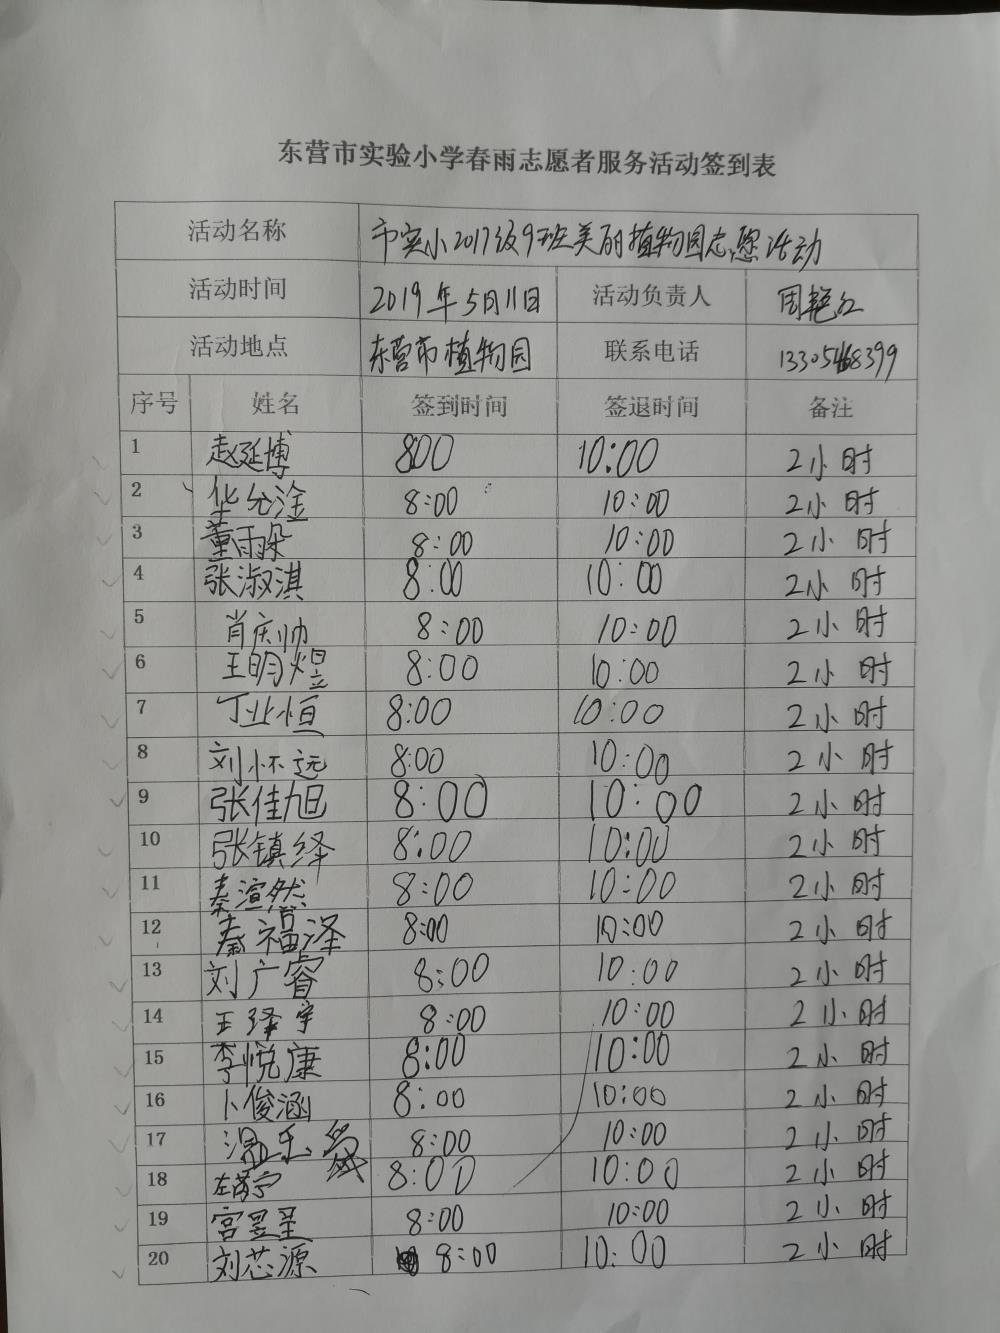 东营市实验小学春雨志愿者服务活动签到表
活动名称 市实小2017级9班美丽植物园志愿活动
活动时间 2019年5月11日 活动负责人 周艳红
活动地点 东营市植物园 联系电话 13305468399
序号 姓名 签到时间 签退时间 备注
1 赵延博 800 10:00 2小时
2 华允淦 8:00 10:00 2小时
3 董雨朵 8:00 10:00 2小时
4 张淑淇 8:00 10:00 2小时
5 肖庆帅 8:00 10:00 2小时
6 王明煜 8:00 10:00 2小时
7 丁业恒 8:00 10:00 2小时
8 刘怀远 8:00 10:00 2小时
9 张佳旭 8:00 10:00 2小时
10 张镇绎 8:00 10:00 2小时
11 秦渲然 8:00 10:00 2小时
12 秦福泽 8:00 10:00 2小时
13 刘广睿 8:00 10:00 2小时
14 王绎宇 8:00 10:00 2小时
15 李悦康 8:00 10:00 2小时
16 卜俊涵 8:00 10:00 2小时
17 8:00 10:00 2小时
18 8:00 10:00 2小时
19 宫昱圣 8:00 10:00 2小时
20 刘芯源 8:00 10:00 2小时